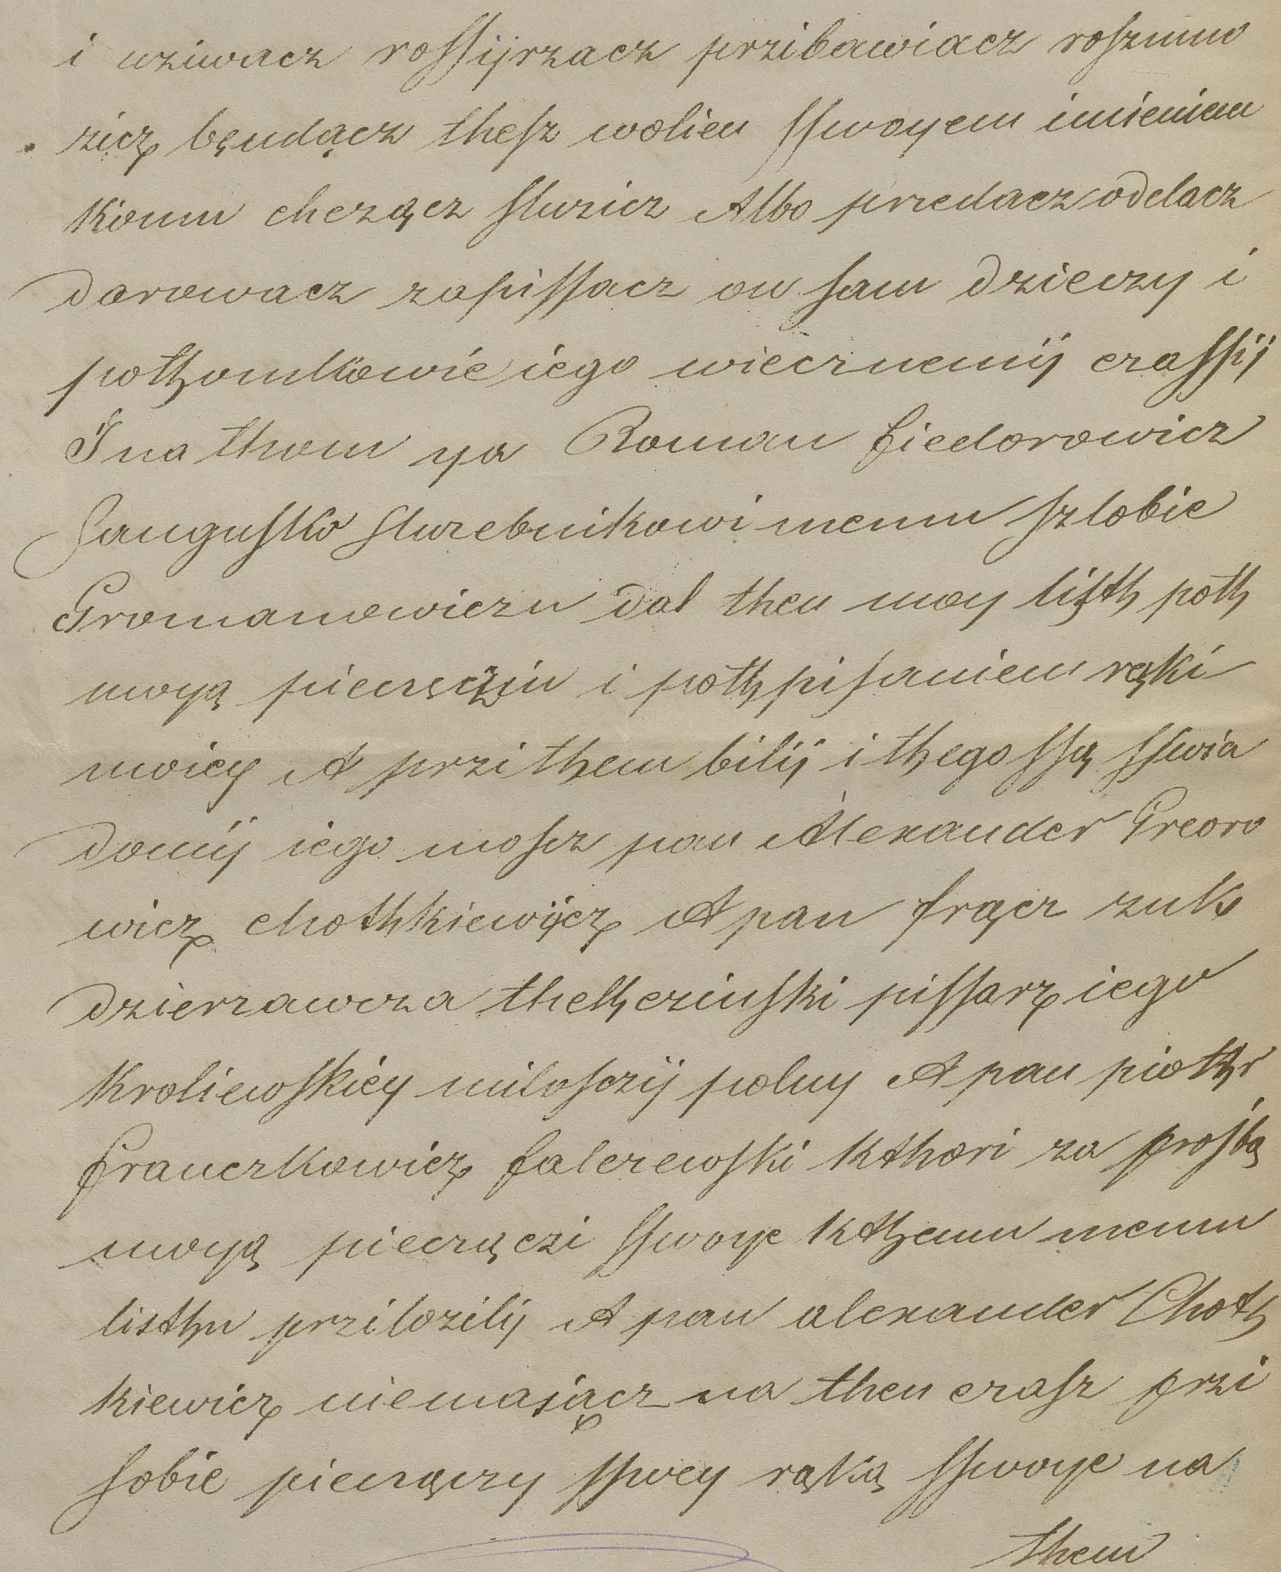 i uziwacz rosſijrzacz przibawiacz roszmno
zicz będącz thesz wolien sſwoyem imieniem
komu chcząc służicz Albo przedacz odelacz
darowacz zapisſacz on sam dzieczy i
pothomkowie iego wiecznemij czasſij
I na thom ya Roman fiedorowicz
Sangusko sluzebnikowi memu szlobie
Gromanowiczu dal then moy listh poth
moyą pieczęczią i pothpisaniem ręki
moiey A przi them bilij i thego sſą sſwia
domij iego moscz pan Alexander Greoro
wicz chothkiewicz A pan frącz zuk
dzierzawcza thethczinski pisſarz iego
kroliewskiey miloscij polny A pan piothr
franczkowicz falczewski kthori za prosbą
moyą pieczączi sſwoye kthemu memu
listhu przilozilij A pan alexander Choth
kiewicz niemaiącz na then czasz przi
sobie pieczączy sſwey ręką sſwoye na
them